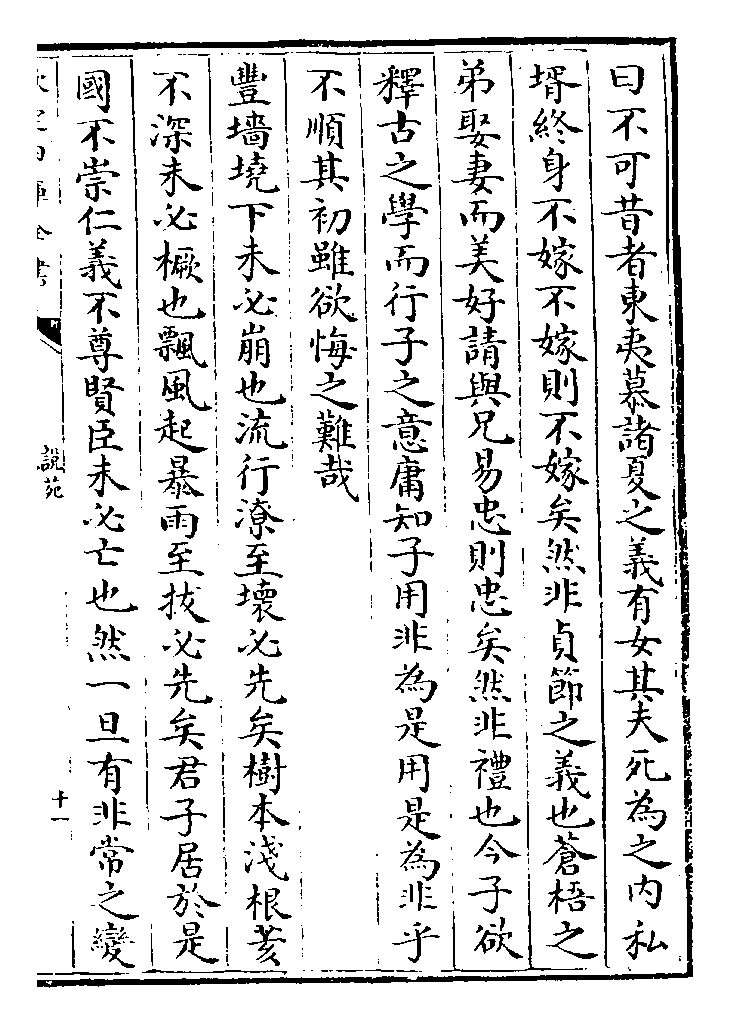 曰不可昔者東夷慕諸夏之義有女其夫死為之内私
壻終身不嫁不嫁則不嫁矣然非貞節之義也蒼梧之
弟娶妻而美好請與兄易忠則忠矣然非禮也今子欲
釋古之學而行子之意庸知子用非為是用是為非乎
不順其初雖欲悔之難哉
豐墻墝下未必崩也流行潦至壊必先矣樹本淺根荄
不深未必橛也飄風起暴雨至拔必先矣君子居於是
國不崇仁義不尊賢臣未必亡也然一旦有非常之變
說苑
十一